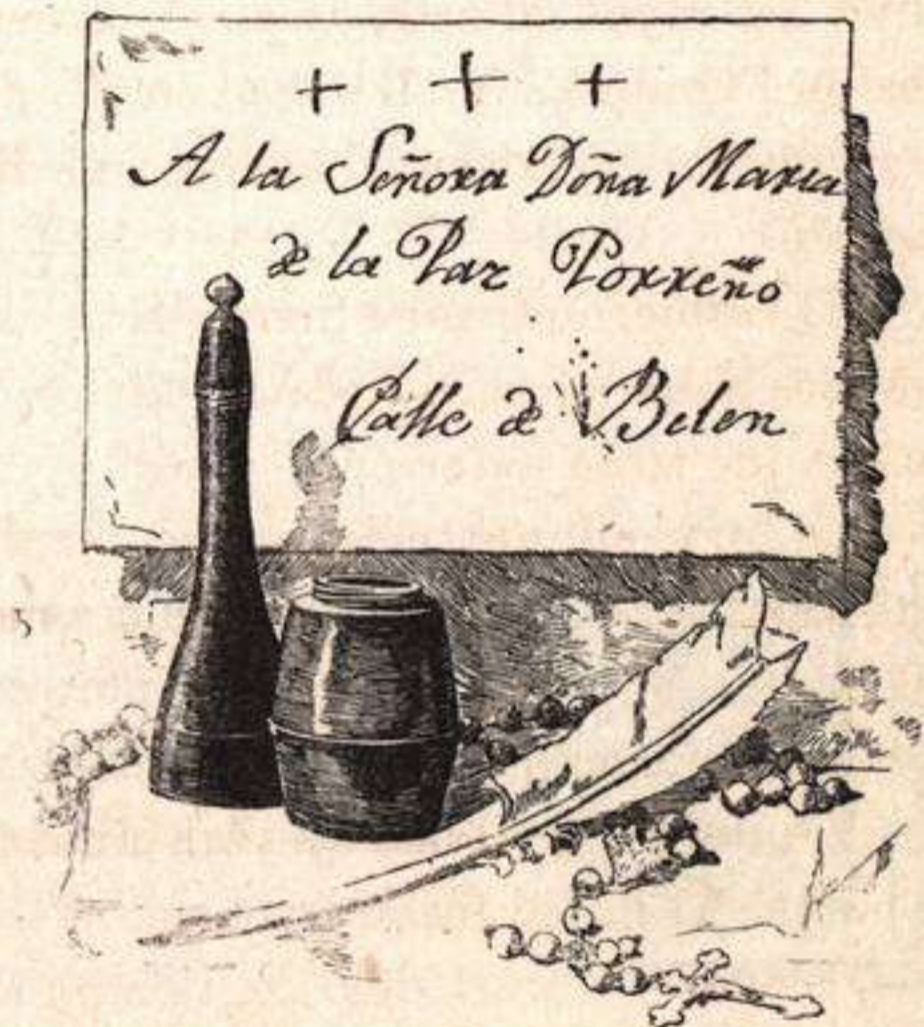 + + +
A la Señora Doña Maria
de la Paz Porreño
Calle de Belen